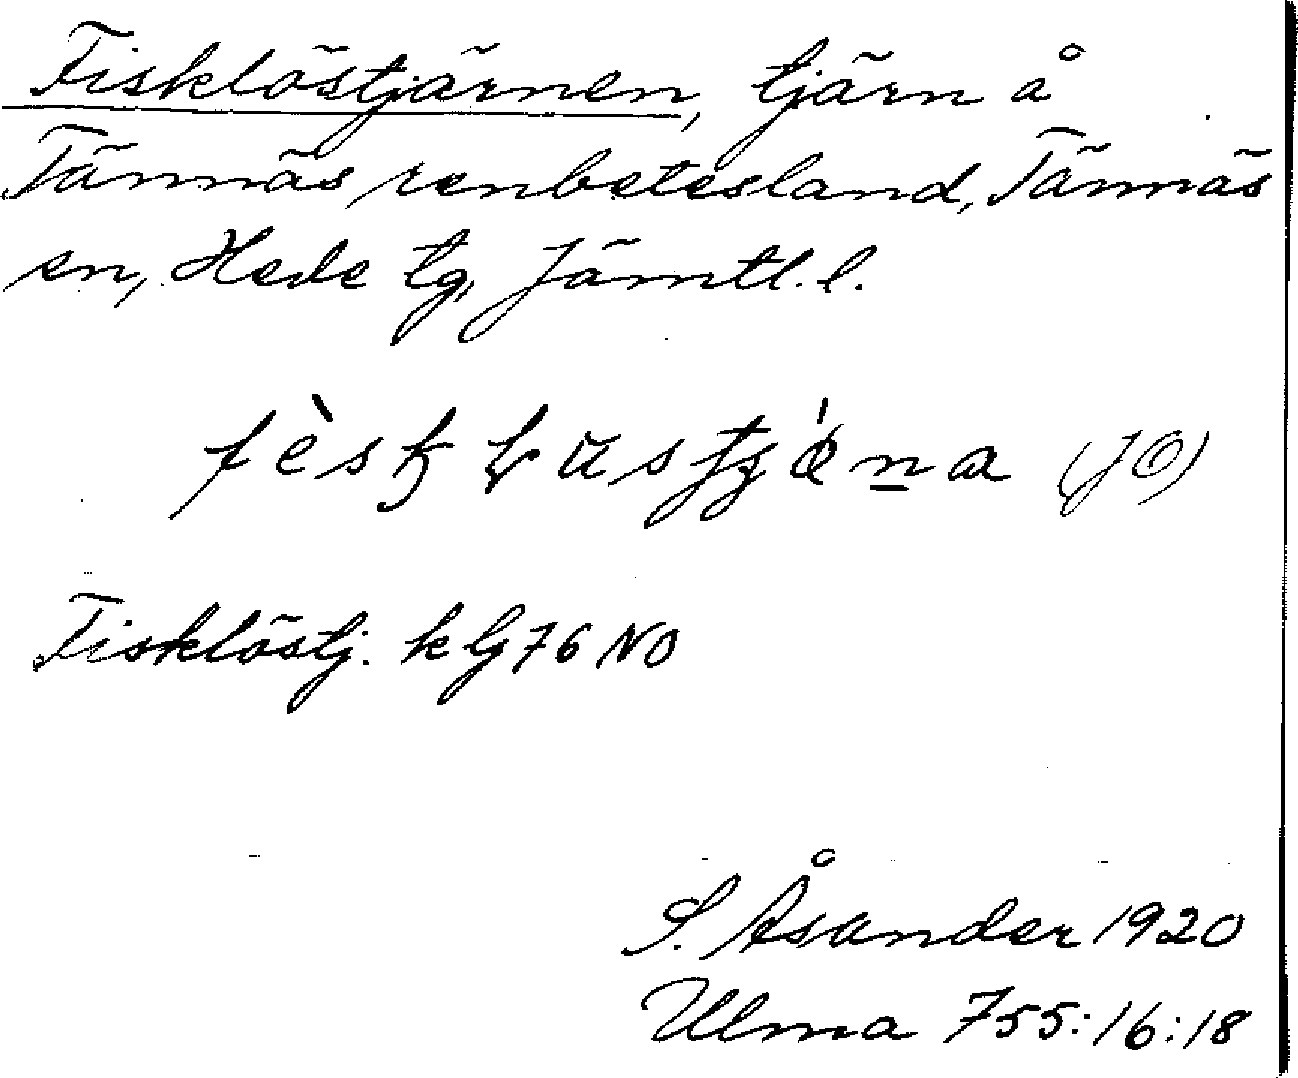 Fisklöstjärnen, tjärn å
Tännäs renbetesland, Tännäs
sn, Hede tg, Jämtl. l.
(JÖ)
Fisklöstj. k lj 76 NO
S. Åsander 1920
Ulma 755:16:18